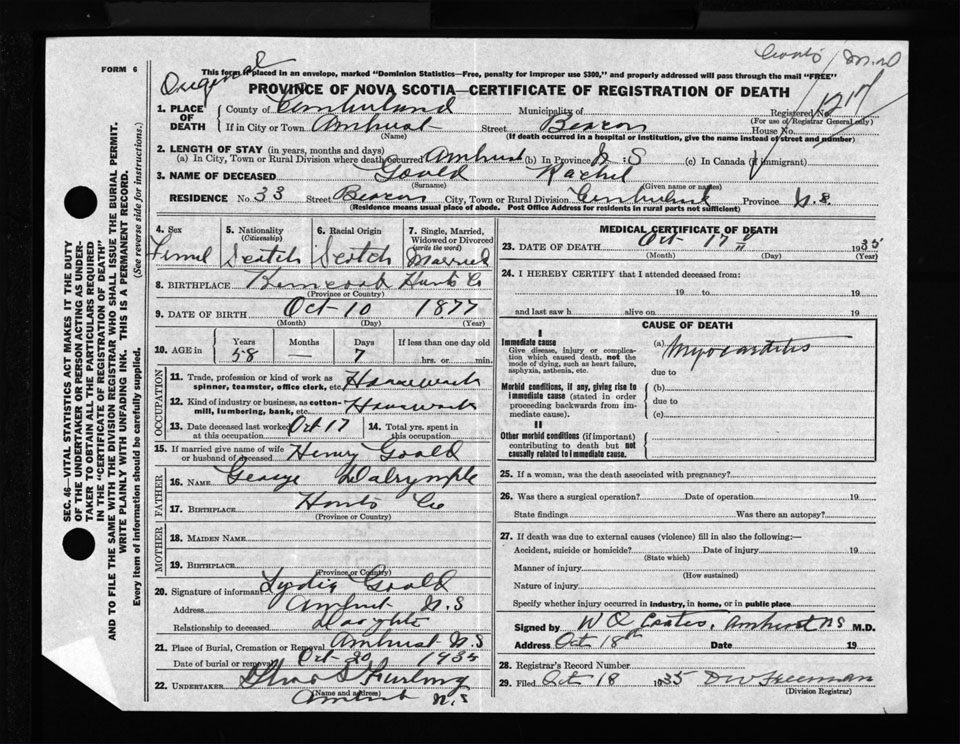 FORM 6
Original
Coats / M.D
This form if placed in an envelope, marked "Dominion Statistics—Free, penalty for improper use $300," and properly addressed will pass through the mail "FREE"
PROVINCE OF NOVA SCOTIA—CERTIFICATE OF REGISTRATION OF DEATH
1. PLACE OF DEATH
County of Cumberland Municipality of Registered No.
(For use of Registrar General only)
If in City or Town Amherst Street Beacon House No.
(Name) (If death occurred in a hospital or institution, give the name instead of street and number)
2. LENGTH OF STAY (in years, months and days)
(a) In City, Town or Rural Division where death occurred Amherst (b) In Province N.S (c) In Canada (if immigrant)
3. NAME OF DECEASED Goold Rachel
(Surname) (Given name or names)
RESIDENCE No. 33 Street Beacon City, Town or Rural Division Cumberland Province N.S
(Residence means usual place of abode. Post Office Address for residents in rural parts not sufficient)
4. Sex Femel
5. Nationality (Citizenship) Scotch
6. Racial Origin Scotch
7. Single, Married, Widowed or Divorced (write the word) Married
8. BIRTHPLACE Hants Co
(Province or Country)
9. DATE OF BIRTH Oct 10 1877
(Month) (Day) (Year)
10. AGE in Years 58 Months — Days 7 If less than one day old hrs. or min.
OCCUPATION
11. Trade, profession or kind of work as spinner, teamster, office clerk, etc. Housework
12. Kind of industry or business, as cotton-mill, lumbering, bank, etc. Housework
13. Date deceased last worked at this occupation Oct 17
14. Total yrs. spent in this occupation
15. If married give name of wife or husband of deceased Henry Goold
FATHER
16. NAME George Dalrymple
17. BIRTHPLACE Hants Co
(Province or Country)
MOTHER
18. MAIDEN NAME
19. BIRTHPLACE
(Province or Country)
20. Signature of informant Lydia Goold
Address Amherst N.S
Relationship to deceased Daughter
21. Place of Burial, Cremation or Removal Amherst N.S
Date of burial or removal Oct 20 1935
22. UNDERTAKER Furlong
(Name and address)
Amherst N.S
MEDICAL CERTIFICATE OF DEATH
23. DATE OF DEATH Oct 17 1935
(Month) (Day)
24. I HEREBY CERTIFY that I attended deceased from:
19 to 19
and last saw h alive on 19
CAUSE OF DEATH
I
Immediate cause
Give disease, injury or complication which caused death, not the mode of dying, such as heart failure, asphyxia, asthenia, etc.
(a) Myocarditis
due to
Morbid conditions, if any, giving rise to immediate cause (stated in order proceeding backwards from immediate cause).
(b)
due to
(c)
II
Other morbid conditions (if important) contributing to death but not causally related to immediate cause.
25. If a woman, was the death associated with pregnancy?
26. Was there a surgical operation? Date of operation 19
State findings Was there an autopsy?
27. If death was due to external causes (violence) fill in also the following:—
Accident, suicide or homicide? Date of injury 19
(State which)
Manner of injury
(How sustained)
Nature of injury
Specify whether injury occurred in industry, in home, or in public place
Signed by Amherst NS M.D.
Address Oct 18th Date 19
28. Registrar's Record Number
29. Filed Oct 18 1935 DW Freeman
(Division Registrar)
SEC. 46—VITAL STATISTICS ACT MAKES IT THE DUTY
OF THE UNDERTAKER OR PERSON ACTING AS UNDERTAKER
TO OBTAIN ALL THE PARTICULARS REQUIRED
IN THE "CERTIFICATE OF REGISTRATION OF DEATH"
AND TO FILE THE SAME WITH THE DIVISION REGISTRAR WHO SHALL ISSUE THE BURIAL PERMIT.
WRITE PLAINLY WITH UNFADING INK. THIS IS A PERMANENT RECORD.
Every item of information should be carefully supplied. (See reverse side for instructions.)